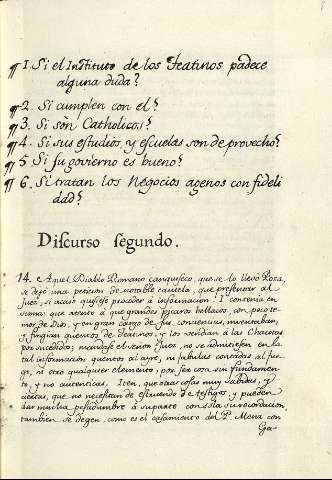 ¶ 1. Si el Instituto de los Teatinos padece
alguna duda?
¶ 2. Si cumplen con el?
¶ 3. Si són Catholicos?
¶ 4. Si sus estudios, y escuelas son de provecho?
¶ 5 Si su govierno es bueno?
¶ 6. Si tratan los Negocios agenos con fideli
dád?
Discurso segundo.
14. Aquel Diablo Romano que se lo llevó
se dejó una peticion de notable cautela, que presentar al
Juez, si acaso quisiese proceder á informacion: I contenia en
suma: que atento á que grandes picaros bellacos, con poco te-
mor de Dios, y en gran cargo de sus conciencias, inventaban,
y fingian quentos de Teatinos, y los vendian á las
por sucedidos; mandase el señor Juez, no se admitiesen en la
tal informacion quentos al ayre, ni fabulas contadas al fue-
go, ni otro qualquier elemento, por ser cosa sin fundamen-
to, y no autenticas. Iten, que otras cosas muy sabidas, y
ciertas, que no necesitan de estruendo de testigos, y pueden
dar mucha pesadumbre á su parte con sola su recordacion,
tambien se dejen, como es el casamiento del P. Mena con
Ga-